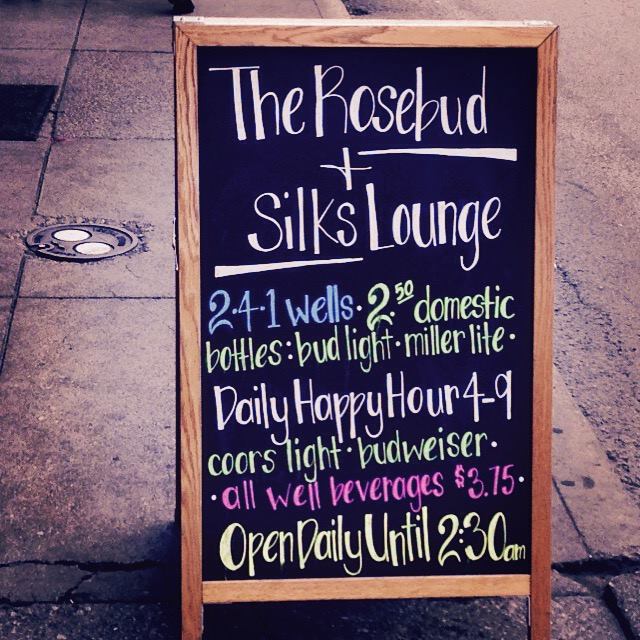 The Rosebud
+
Silks Lounge
2·4·1 wells · 2.50 domestic
bottles: bud light · miller lite ·
Daily Happy Hour 4-9
coors light · budweiser ·
· all well beverages $3.75 ·
Open Daily Until 2:30am